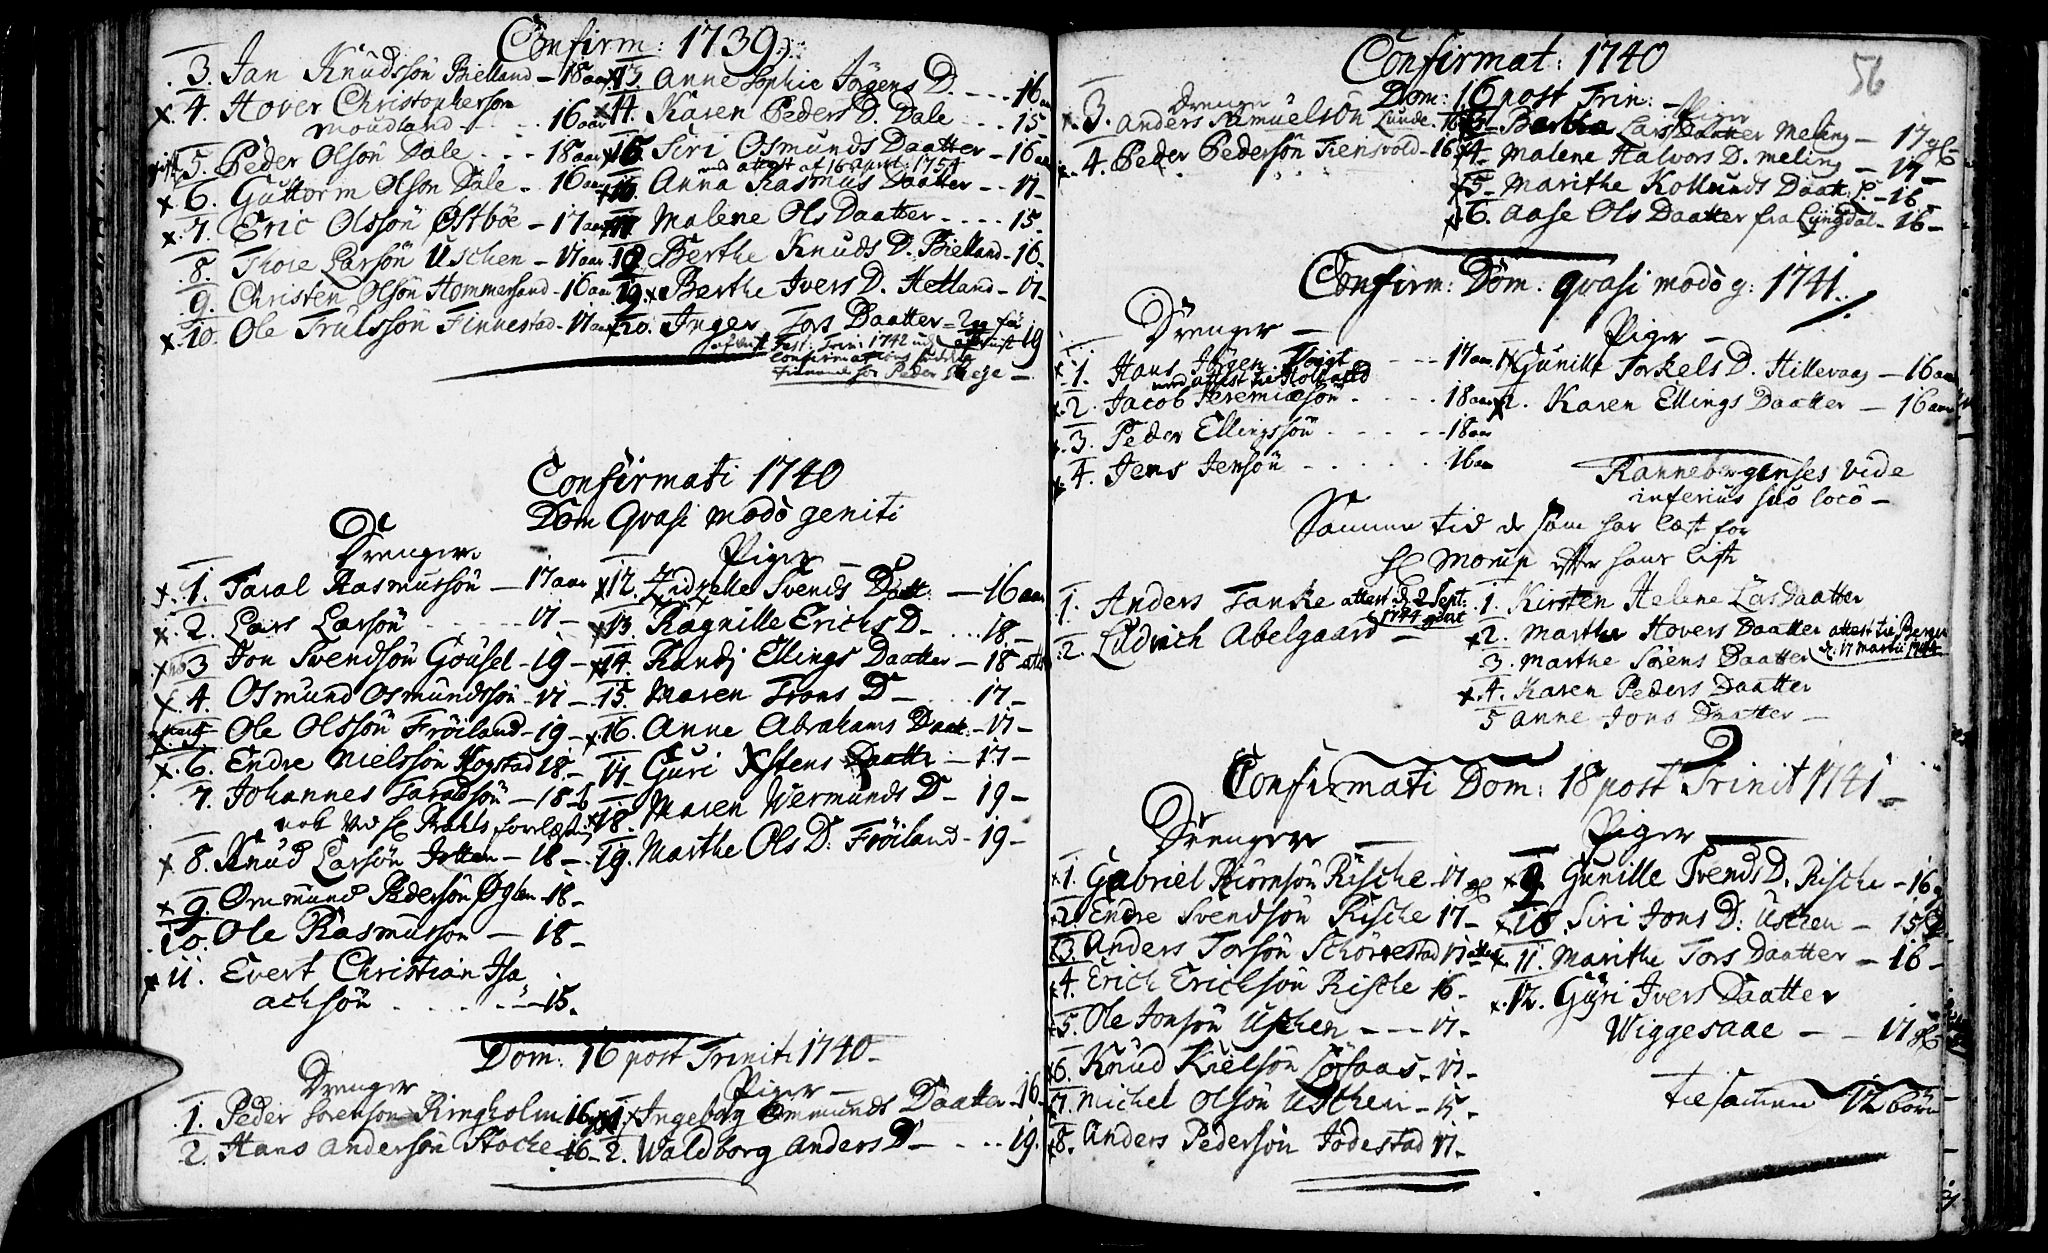 Confirm: 1739.
3. Jan Knudssön Bielland – 18 aar
× 4. Hover Christophersön
Moudland – 16 aar
5. Peder Olsön Dale – 18 aar
× 6. Guttorm Olsön Dale – 16 aar
× 7. Eric Olssön Østbøe – 17 aar
8. Thore Larsön Uschen – 17 aar
9. Christen Olsön Hommersand – 16 aar
× 10. Ole Trulssön Finnestad – 17 aar
13. Anne Sophie Jörgens D. – 16 aar
× 14. Karen Peders D. Dale – 15
15. Siri Osmunds Daatter – 16 aar
med attest af 16 April: 1754
16. Anna Rasmus Daatter – 17
17. Malene Ols Daatter – 15.
18. Berthe Knuds D. Bielland – 16.
19. × Berthe Ivers D. Hetland – 17
20. Inger Tors Daatter – 19
Fest: Trin: 1742
Confirmations
for Peder
Confirmati 1740
Dom Qvasi modo geniti
Drenger
× 1. Taral Rasmussön – 17 aar
× 2. Lars Larsön – 17 –
× 3 Jon Svendsön Gousel – 19 –
× 4. Osmund Osmundssön – 17 –
5. Ole Olssön Fröiland – 19 –
× 6. Endre Nielssön Hogstad 18 –
7. Johannes Taraldsön – 18
× 8. Knud Larsön Jotten – 18 –
× 9. Ommund Pedersön Øglen – 18 –
10. Ole Rasmussön – 18 –
× 11. Evert Christian Isa
achsön – 15.
Piger
× 12. Zidzelle Svends Daatt: – 16 aar
× 13. Ragnille Erichs D – 18. –
× 14. Randj Ellings Daatter – 18
15. Maren Trons D – 17 –
× 16. Anne Abrahams Daat: – 17 –
17. Guri Xstens Daatter – 17 –
18. Maren Wermunds D – 19 –
19. Marthe Ols D. Fröiland – 19 –
Dom: 16 post Trinit: 1740 –
Drenger
1. Peder Sörensön Ringholm 16
2. Hans Andersön Stocke 16 –
Piger –
1. × Ingeborg Ommunds Daatter – 16
2. Waldborg Anders D – 19.
56
Confirmat: 1740
Dom: 16 post Trin: –
Drenger
× 3. Anders Samuelsön Lunde – 16
4. Peder Pedersön Tiensvold – 16
Piger
3. Bertha Lars Daatter Meling – 17
4. Malene Halvors D. Meling – 17 –
5. Marithe Kolluds Daatt: – 16
6. Aase Ols Daatter fra Lyngdal – 16 –
Confirm: Dom: qvasi modo g: 1741.
Drenger –
× 1. Hans Jörgen Voigt – 17 aar
med attest til Holland
× 2. Jacob Jeremiæsön – 18 aar
× 3. Peder Ellingssön – 18 aar
× 4. Jens Jensön – 16 aar
Piger –
1. Gunille Torkels D. Hillevaag – 16 aar
× 2. Karen Ellings Daatter – 16 aar
Rannebergenses vide
inferius suo loco –
Samme tid de som har læst for
Morup efter hans liste
1. Anders Tanke attest d. 2 Sept: 1744
2. Ludvich Abelgaard –
1. Kirsten Helene Lars Daatter
× 2. Marthe Hovers Daatter attest til Bergen d. 17 Martii 1744
3. Marthe Sörens Daatter
× 4. Karen Peders Daatter
5 Anne Jons Daatter –
Confirmati Dom: 18 post Trinit 1741 –
Drenger –
× 1. Gabriel Biörnsön Rische – 17
2. Endre Svendsön Rische 17 –
3. Anders Torsön Schörrestad 17
× 4. Erich Erichsön Rische 16 –
× 5. Ole Jonsön Uschen – 17 –
× 6. Knud Kielsön – 17 –
7. Michel Olsön Uschen – 15 –
× 8. Anders Pedersön Jodestad 17 –
Piger
× 9. Gunille Svends D. Rische – 16
× 10. Siri Jons D: Uschen – 15
× 11. Marithe Tors Daatter – 16 –
× 12. Guri Ivers Daatter
Wiggesaae – 17
tilsamen 12 börn